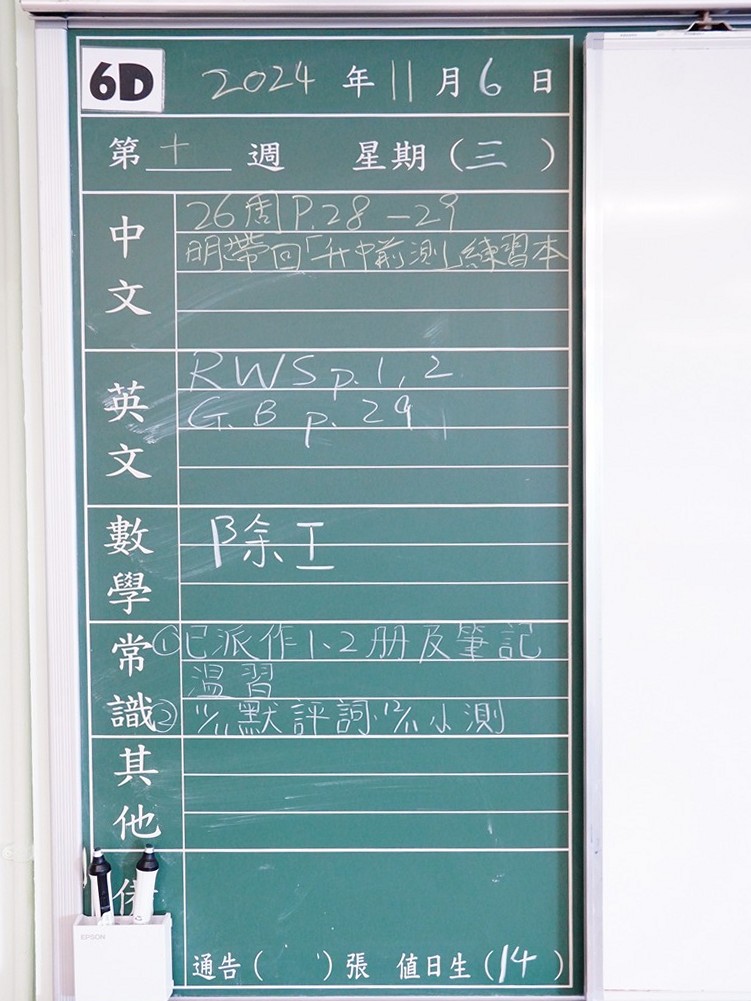 6D 2024 年 11 月 6 日
第 十 週 星期 (三 )
中文
26周 P.28-29
明帶回「升中前測」練習本
英文
RWS p.1,2
G.B p.29
數學
除工
常識
① 已派作1、2册及筆記
溫習
② 11/11默評詞.12/11小測
其他
EPSON
通告 ( ) 張 值日生 (14 )